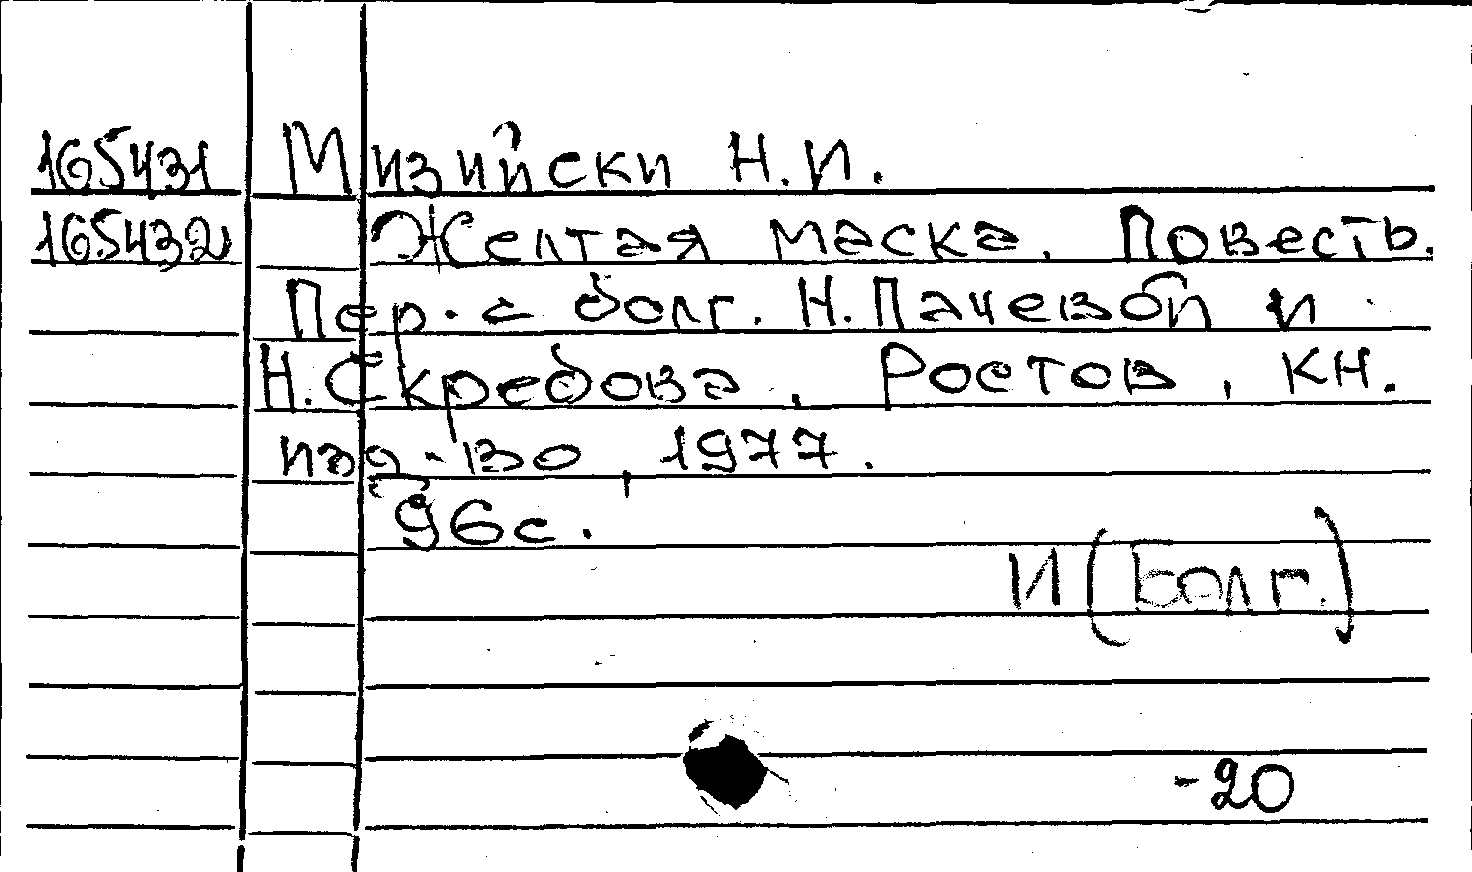 165431 Мизийски Н.И.
165432 Желтая маска. Повесть.
Пер. с болг. Н.Пачевой и
Н.Скребова. Ростов, кн.
изд-во, 1977.
96с.
И (Болг.)
-20